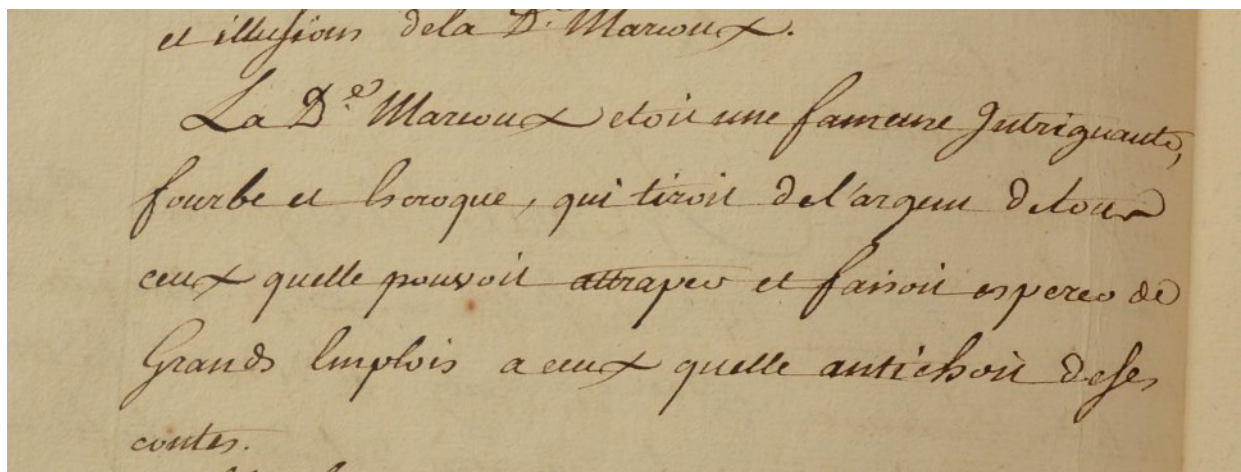 et illusions dela D.e Marioux.
La D.e Marioux etoit une fameuse Intriguante,
fourbe et escroque, qui tiroit del'argent detous
ceux quelle pouvoit attraper et faisoit esperer de
Grands Emplois a ceux quelle antichoit deses
contes.